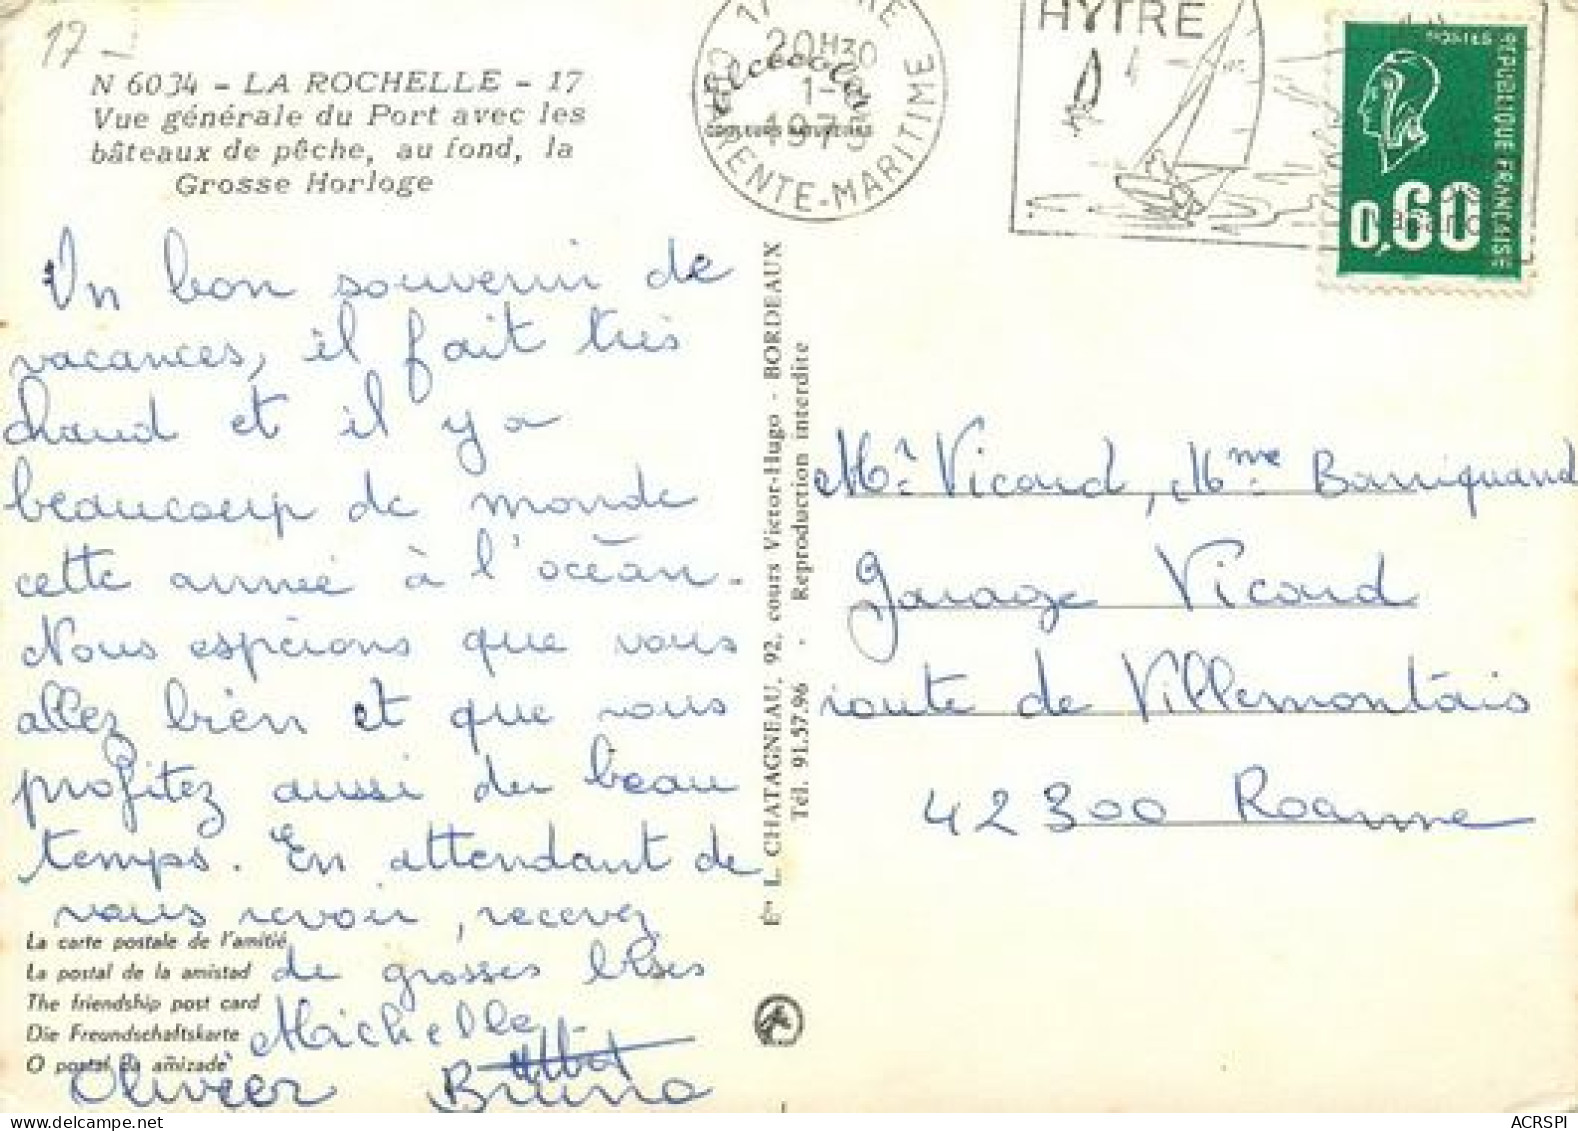 17
N 6034 - LA ROCHELLE - 17
Vue générale du Port avec les
bâteaux de pêche, au fond, la
Grosse Horloge
20H30
1-
1975
CHARENTE-MARITIME
HYTRE
POSTES
REPUBLIQUE FRANÇAISE
0,60
Un bon souvenir de
vacances, il fait très
chaud et il y a
beaucoup de monde
cette année à l'océan.
Nous espérions que vous
allez bien et que vous
profitez aussi du beau
temps. En attendant de
vous revoir, recevez
de grosses bises
Michelle
Olivier Bruno
La carte postale de l'amitié
La postal de la amistad
The friendship post card
Die Freundschaftskarte
O postal da amizade
Éts L. CHATAGNEAU, 92, cours Victor-Hugo - BORDEAUX
Tél. 91.57.96 - Reproduction interdite
Mr Vicard, Mme Barriquand
garage Vicard
route de Villemontais
42300 Roanne
ACRSPI